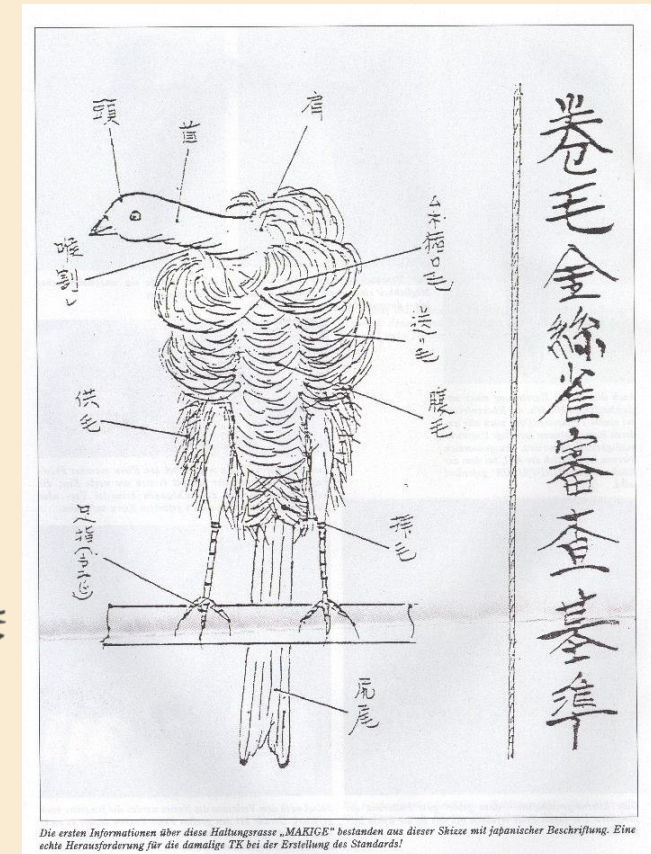 巻毛金絲雀審査基準
頭
首
肩
喉割レ
送リ毛
腹毛
供毛
採毛
尻尾
Die ersten Informationen über diese Haltungsrasse „MAKIGE" bestanden aus dieser Skizze mit japanischer Beschriftung. Eine
echte Herausforderung für die damalige TK bei der Erstellung des Standards!